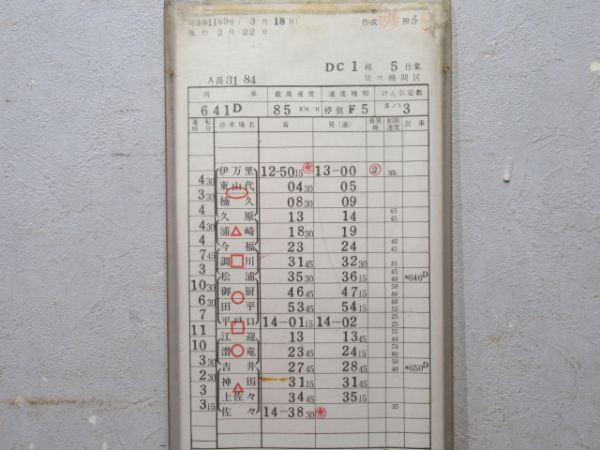 司達第1189号 (3月18日) 作成
施行 3月22日
DC1組 5仕業
A長31 84 佐々機関区
列車 最高速度 速度種別 けん引定数
641D 85KM/H 停気F5 キハ3
運転時分 停車場名 着 発(通) 着発線 制限速度 記事
伊万里 12-50 15 13-00 ② 35
4 30
東山代 04 30 05
3 30
楠久 08 30 09
4
久原 13 14 65
4 45
浦崎 18 30 19
4
今福 23 24 40 45
7 45
調川 31 45 32 30 85
3 45
松浦 35 30 36 15 40 646D
10 30
御厨 46 45 47 15
6 30
田平 53 45 54 15
7
平戸口 14-01 15 14-02
11
江迎 13 13 45
10
潜竜 23 45 24 15
3 30
吉井 27 45 28 45 650D
2 30
神田 31 15 31 45
3
上佐々 34 45 35 15
3 15
佐々 14-38 30 35